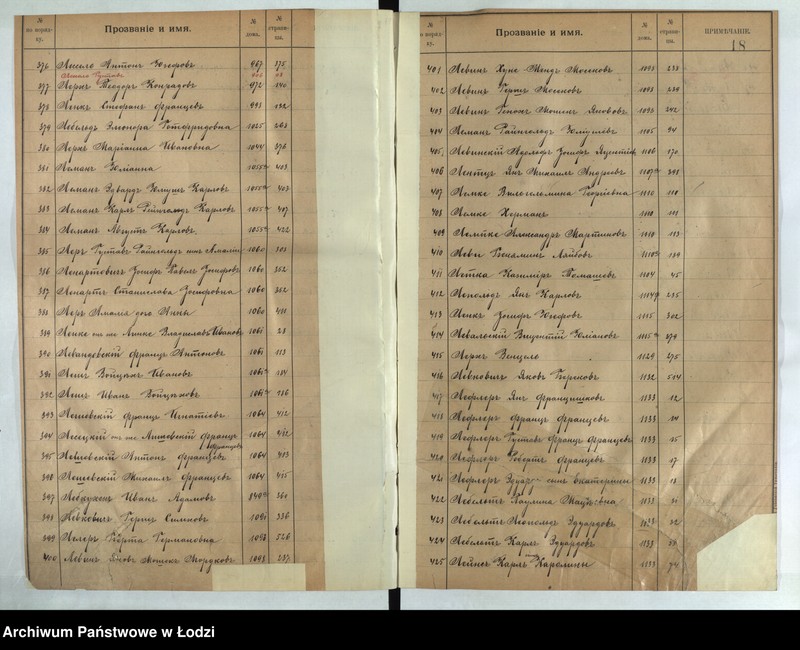 № по порядку.
Прозваніе и имя.
№ дома.
№ страницы.
376 Антонъ 967 375
377 Леркъ Теодоръ Конрадовъ 972
378 Ленкъ Стефанъ Францевъ 993 132
379 Лебельдъ Элеонора Готфридовна 1025 203
380 Леркъ Маріанна Ивановна 1044 376
381 Леманъ Юліанна 1055 403
382 Леманъ Эдвардъ Юліушъ Карловъ 1055 407
383 Леманъ Карлъ Рейнгольдъ Карловъ 1055 407
384 Леманъ Августъ Карловъ 1055 422
385 Леръ Густавъ Райнгольдъ 1060 303
386 Ленартовичъ Іосифъ Павелъ Іосифовъ 1060 362
387 Ленартъ Станислава Іосифовна 1060 362
388 Леръ Амалія дочь Анны 1060 411
389 Ленке онъ же Линке Владиславъ Ивановъ 1061 23
390 Левандовскій Францъ Антоновъ 1061 113
391 Лешъ Войцѣхъ Ивановъ 1061 184
392 Лешъ Иванъ Войцѣховъ 1061 186
393 Лешевскій Францъ Игнатіевъ 1064 412
394 Лесецкій онъ же Лишевскій Францъ Францевъ 1064 412
395 Лешовскій Антонъ Францевъ 1064 413
396 Лешевскій Михаилъ Францевъ 1064 415
397 Лебкухенъ Иванъ Адамовъ 361
398 Левковичъ Герицъ Симховъ 1091 336
399 Лелеръ Берта Германовна 1093 526
400 Левинъ Мошекъ Мордковъ 1093 237
№ по порядку.
Прозваніе и имя.
№ дома.
№ страницы.
ПРИМѢЧАНІЕ.
18
401 Левинъ Хуне Мендъ Мосеновъ 1093 238
402 Левинъ Герцъ Мосеновъ 1093 239
403 Левинъ Генохъ Мошекъ Янкововъ 1093 242
404 Леманъ Райнгольдъ Юліушевъ 1105 94
405 Левинскій Адольфъ Іосифъ 1106 170
406 Лентцъ Янъ Михаилъ Андреевъ 1107 391
407 Лемке Вильгельмина Георгіевна 1110 110
408 Лемке Херманъ 1110 111
409 Лемпке Александръ Мартиновъ 1110 113
410 Леви Беніаминъ Лайбовъ 1110 139
411 Лепка Казиміръ Томашевъ 1104 45
412 Леополодъ Янъ Карловъ 1114 235
413 Ленкъ Іосифъ Іосифовъ 1115 302
414 Левальскій Винцентій Юліановъ 1115 279
415 Леркъ Венцель 1129 275
416 Левковичъ Яковъ Берековъ 1132 514
417 Лефлеръ Янъ Францишковъ 1133 12
418 Лефлеръ Францъ Францевъ 1133 14
419 Лефлеръ Густавъ Францъ Францевъ 1133 15
420 Лефлеръ Робертъ Францевъ 1133 17
421 Лефлеръ Эдуардъ сынъ Екатерины 1133 18
422 Лебельтъ Паулина Мацѣевна 1133 31
423 Лебельтъ Леопольдъ Эдуардовъ 1133 32
424 Лебельтъ Карлъ Эдуардовъ 1133 38
425 Лейне Карлъ сынъ Каролины 1133 74
Archiwum Państwowe w Łodzi